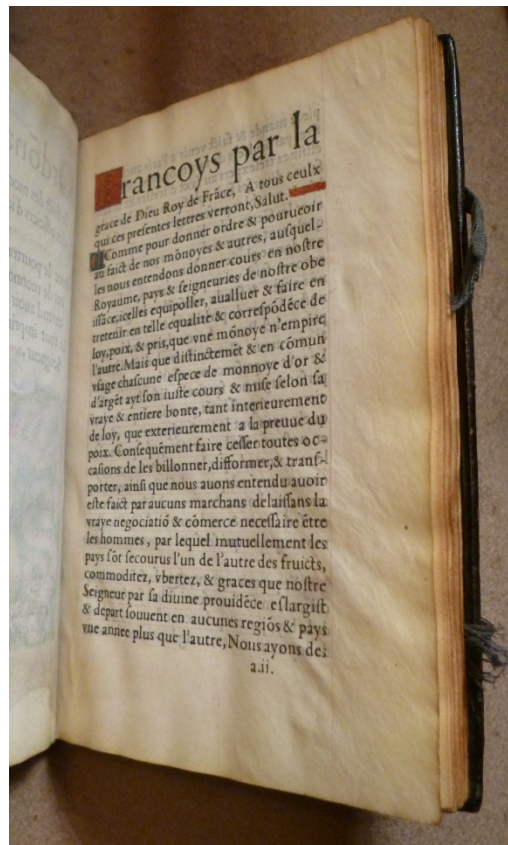 Francoys par la
grace de Dieu Roy de Frãce, A tous ceulx
qui ces presentes lettres verront, Salut.
Comme pour donner ordre & pourueoir
au faict de nos mõnoyes & autres, ausquel-
les nous entendons donner cours en nostre
Royaume, pays & seigneuries de nostre obe
issãce, icelles equipoller, aualluer & faire en
tretenir en telle equalite & correspõdẽce de
loy, poix, & pris, que vne mõnoye n'empire
l'autre. Mais que distinctemẽt & en cõmun
vsage chascune espece de monnoye d'or &
d'argẽt ayt son iuste cours & mise selon sa
vraye & entiere bonte, tant interieurement
de loy, que exterieurement a la preuue du
poix. Consequẽment faire cesser toutes oc-
casions de les billonner, difformer, & trans-
porter, ainsi que nous auons entendu auoir
este faict par aucuns marchans delaissans la
vraye negociatiõ & cõmerce necessaire ẽtre
les hommes, par lequel mutuellement les
pays sõt secourus l'un de l'autre des fruicts,
commoditez, vbertez, & graces que nostre
Seigneur par sa diuine prouidẽce eslargist
& depart souuent en aucunes regiõs & pays
vne annee plus que l'autre, Nous ayons des
a.ii.